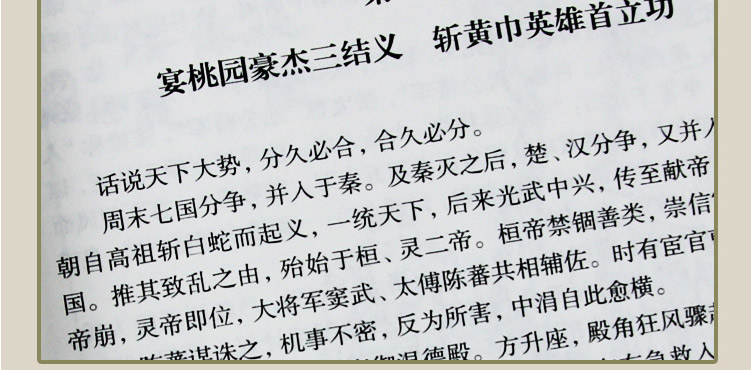 宴桃园豪杰三结义　斩黄巾英雄首立功
话说天下大势，分久必合，合久必分。
周末七国分争，并入于秦。及秦灭之后，楚、汉分争，又并入
朝自高祖斩白蛇而起义，一统天下，后来光武中兴，传至献帝
国。推其致乱之由，殆始于桓、灵二帝。桓帝禁锢善类，崇信
帝崩，灵帝即位，大将军窦武、太傅陈蕃共相辅佐。时有宦官
陈蕃谋诛之，机事不密，反为所害，中涓自此愈横。
御温德殿。方升座，殿角狂风骤
急救入